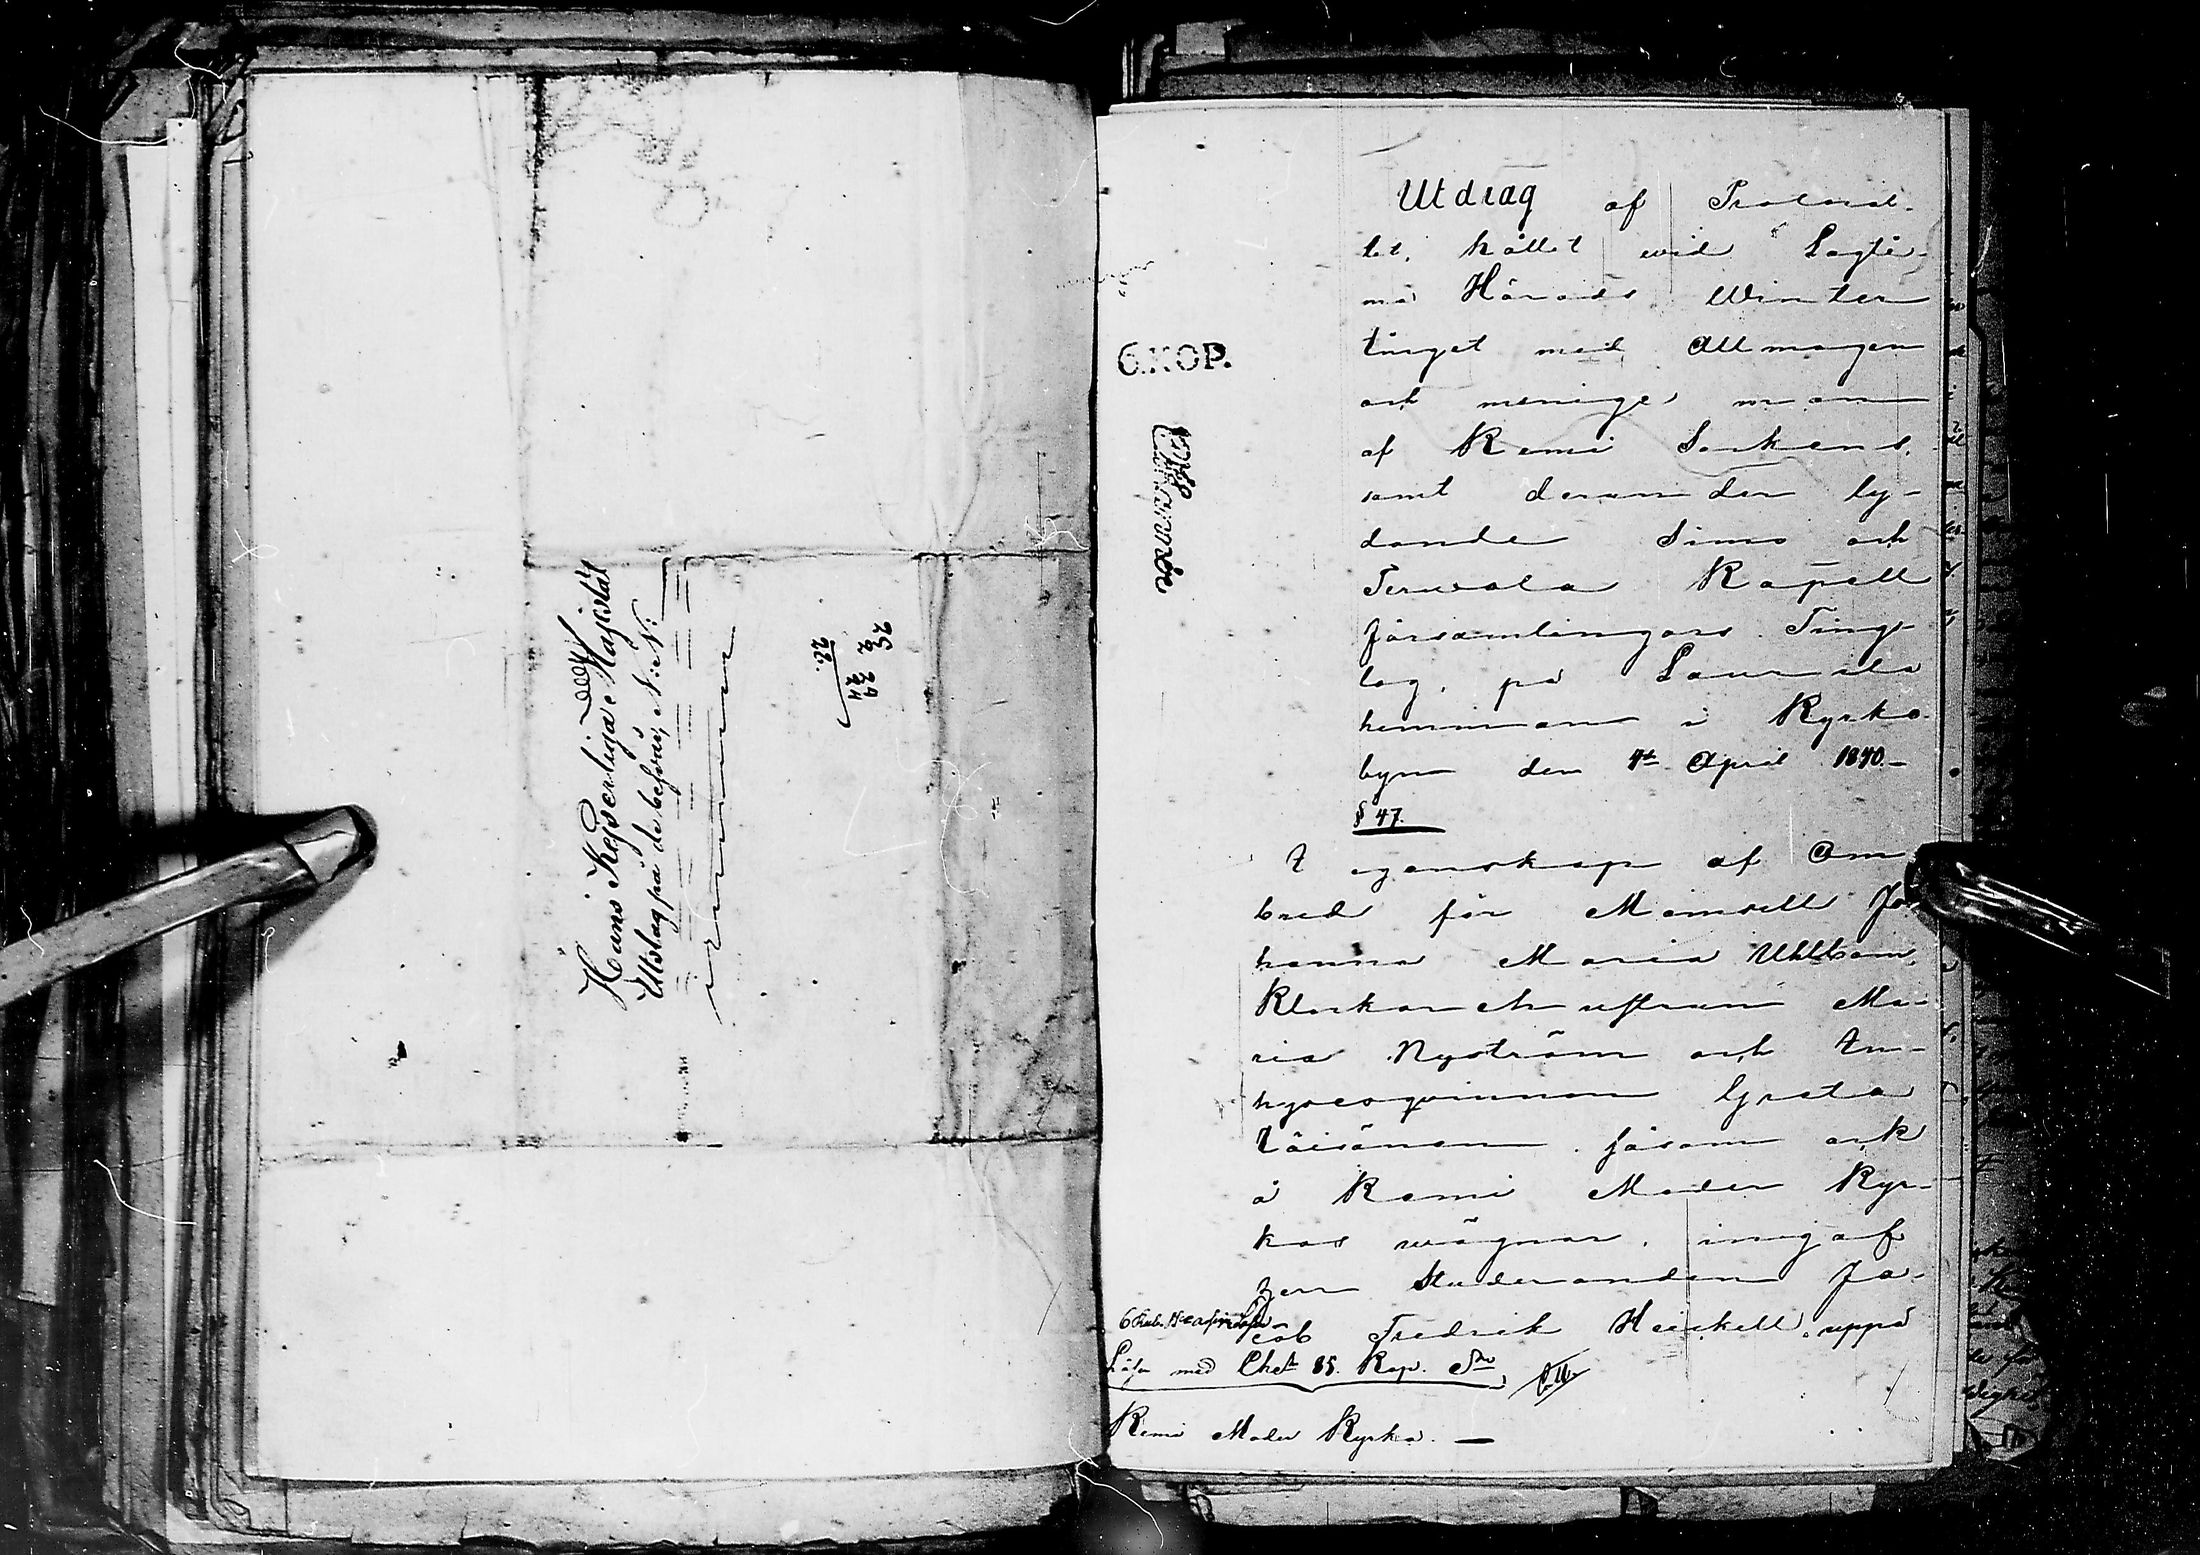 Hans Kejserliga Majestäts
Utslag på de besvär, N: N:
29 29
2
22.
6.KOP.
Utdrag af Protocol-
let, hållet wid Lagti-
ma Härads Winter
tinget med Allmogen
och menige man
af Kemi Sockens,
samt derunder ly-
dande Simo och
Terwola Kapell
församlingars Ting-
lag, på Laurila
hemman i Kyrko-
byn den 4de April 1840.-
§ 47.
I egenskap af Om
bud för Mamsell Jo-
hanna Maria Uhlbom,
Klockare hustrun Ma-
ria Nyström och In-
hyses qvinnan Greta
Säisänen, såsom ock
å Kemi Moder Kyr-
kas wägnar, ingaf
Herr Studeranden Ja-
cob Fredrik Heickell, uppå
Lösn med Chet 85. Kop. Srr
Kemi Moder Kyrka. —